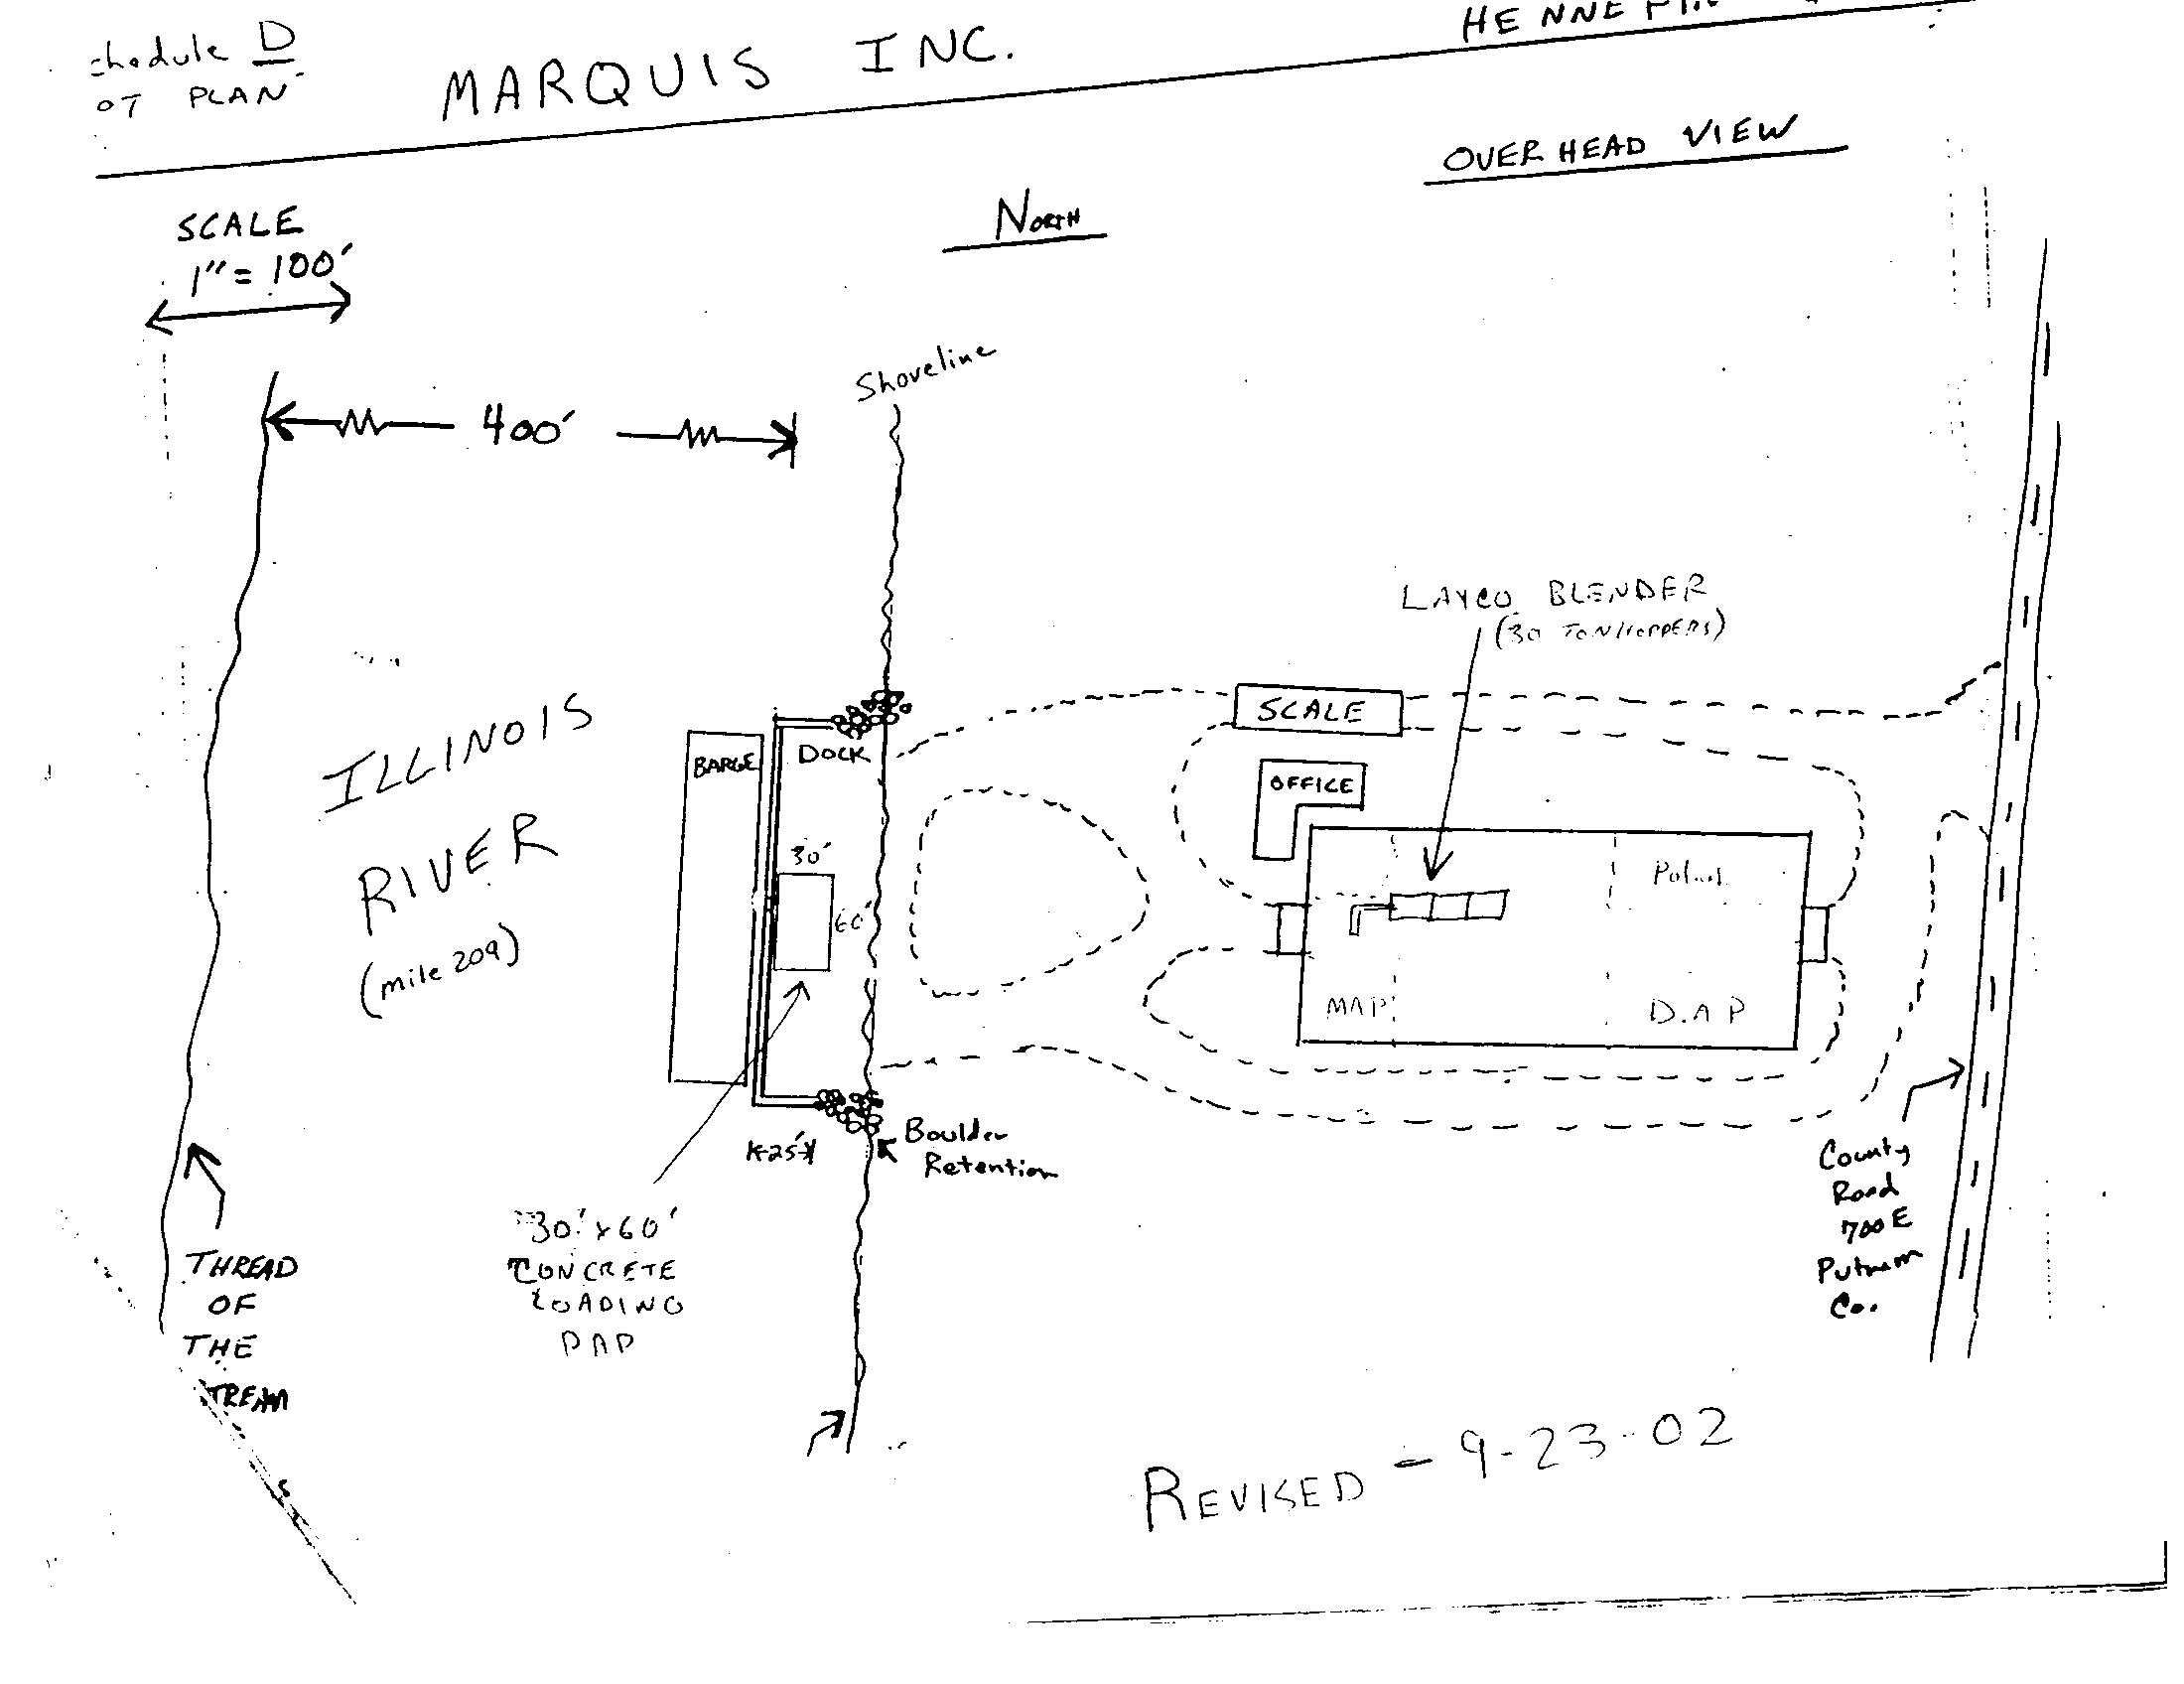 D
MARQUIS INC.
PLAN
OVERHEAD VIEW
NORTH
SCALE
1" = 100'
Shoreline
400'
LAYCO BLENDER
(30 TON HOPPERS)
SCALE
ILLINOIS
RIVER
(mile 209)
BARGE
DOCK
OFFICE
30'
60'
MAP
D.A.P
25'
Boulder
Retention
30' x 60'
CONCRETE
LOADING
PAD
County
Road
700E
Putnam
Co.
THREAD
OF
THE
REVISED - 9-23-02